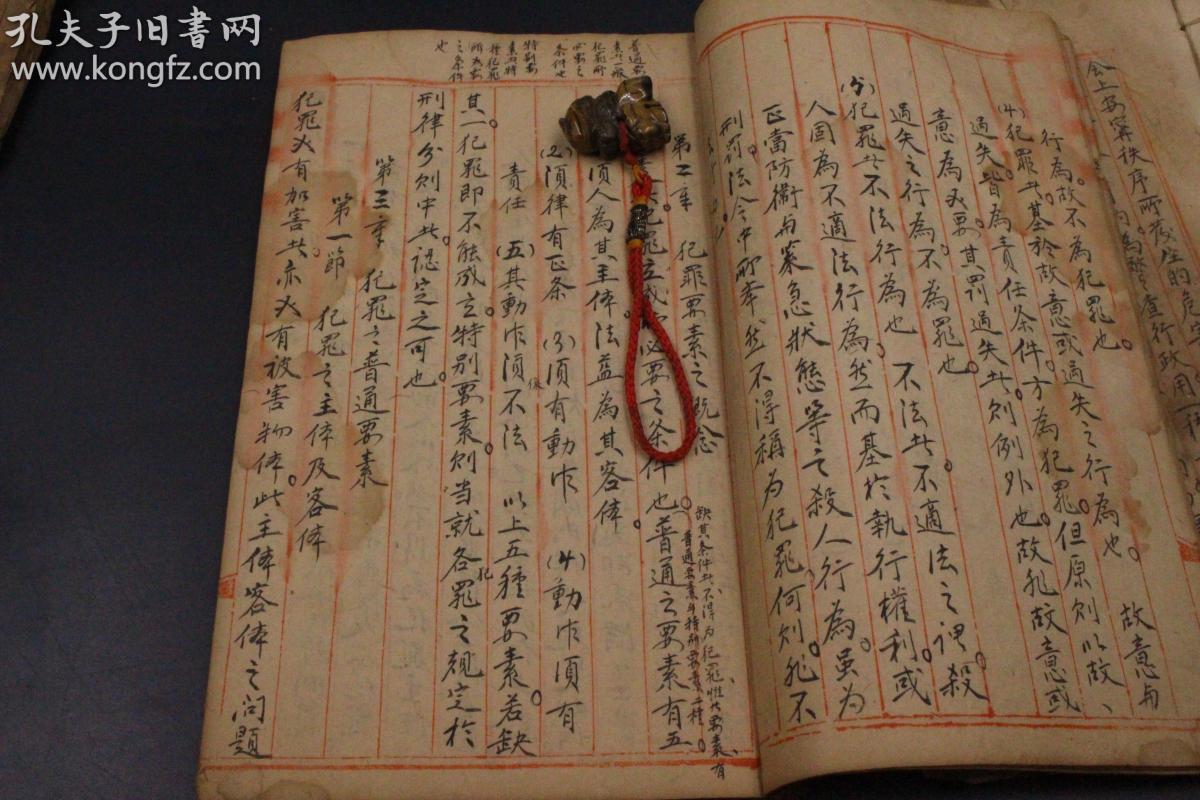 孔夫子旧书网
www.kongfz.com
会上安寧秩序所
行為。故不為犯罪也。 故意与
(4)犯罪者。基於故意或過失之行為也。
過失皆為責任条件。方為犯罪。但原則以故、
意為必要。其罰過失者。則例外也。故非故意或
過失之行為。不為罪也。
(5)犯罪者不法行為也 不法者。不適法之謂。殺
人固為不適法行為。然而基於執行權利。或
正當防衛與緊急狀態等之殺人行為。虽為
刑罰法令中所牽。然不得稱為犯罪。何則。非不
第二章 犯罪要素之既念
犯罪立成必要之条件也。普通之要素有五
缺其条件者。不得為犯罪。惟此要素、有
普通要素与特別要素二種。
須人為其主体。法益為其客体。
(2)須律有正条 (3)須有動作 (4)動作須有
責任 (五)其動作須不法 以上五種要素。若缺
其一犯罪即不能成立。特別要素。則当就各罪之規定於
犯
刑律分則中者。認定之可也。
普通要
素者一般
犯罪所
必要之
条件也
特別要
素者特
種犯罪
所必要
之条件
也
第三章 犯罪之普通要素
第一節 犯罪之主体及客体
犯罪必有加害者。亦必有被害物体。此主体客体之问題